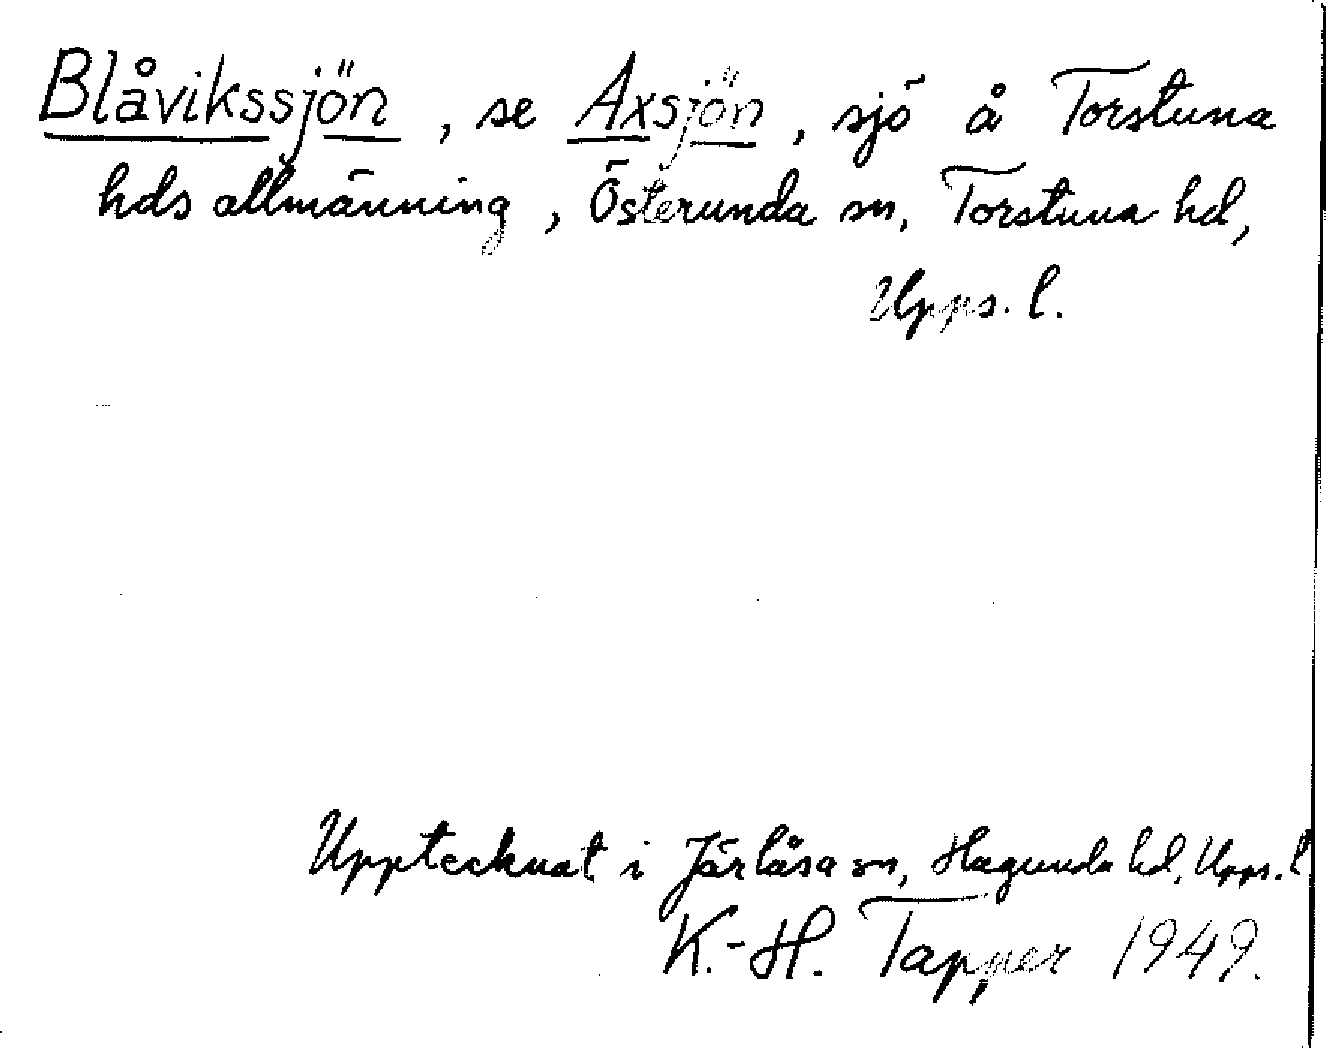 Blåvikssjön, se Axsjön, sjö å Torstuna
hds allmänning, Österunda sn, Torstuna hd,
Upps. l.
Upptecknat i Järlåsa sn, Hagunda hd, Upps. l
K.-H. Tapper 1949.